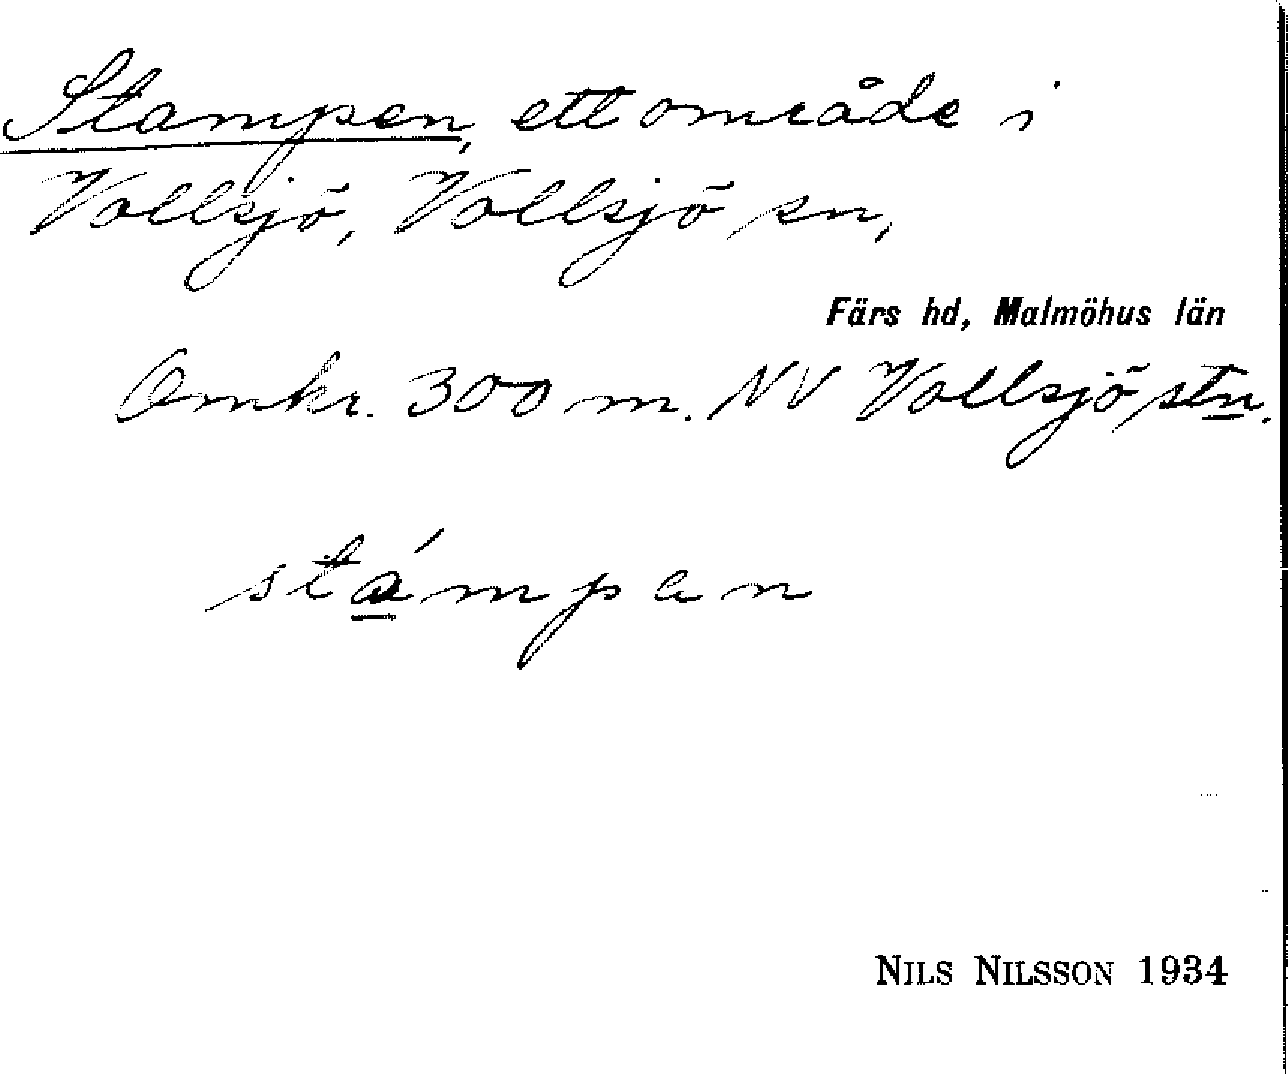 Stampen, ett område i
Vollsjö, Vollsjö sn,
Färs hd, Malmöhus län
Omkr. 300 m. NV Vollsjö stn.
stámpen
NILS NILSSON 1934